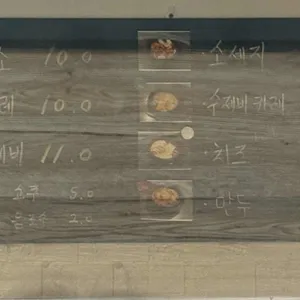 소 10.0 · 소세지
레 10.0 · 수제비카레
제비 11.0 · 치즈
소주 5.0 · 만두
음료수 2.0